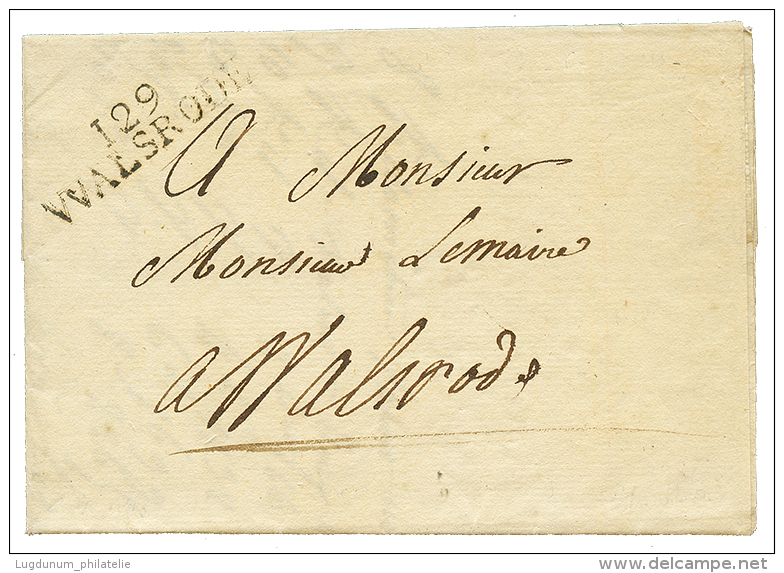 129
WALSRODE
A Monsieur
Monsieur Lemaire
a Walsrode
Lugdunum_philatelie
delcampe.net